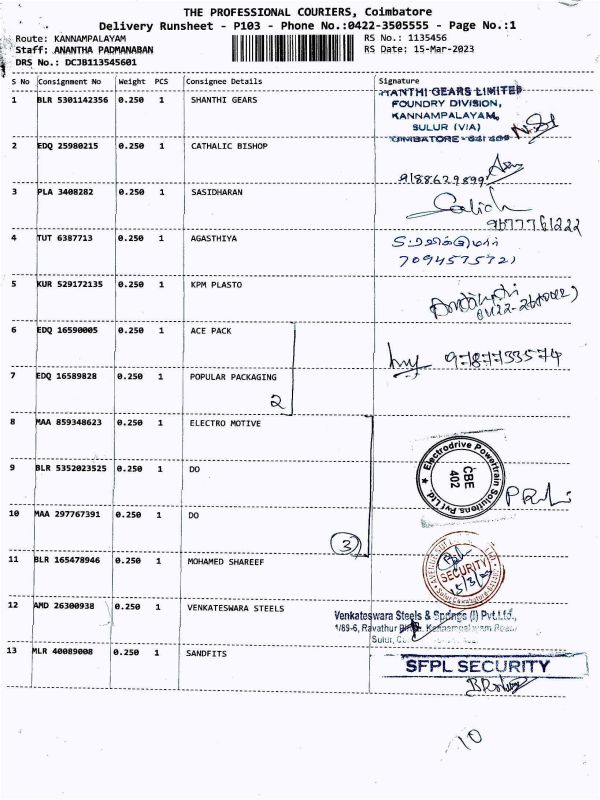 THE PROFESSIONAL COURIERS, Coimbatore
Delivery Runsheet - P103 - Phone No.:0422-3505555 - Page No.:1
Route: KANNAMPALAYAM RS No.: 1135456
Staff: ANANTHA PADMANABAN RS Date: 15-Mar-2023
DRS No.: DCJB113545601
S No Consignment No Weight PCS Consignee Details Signature
1 BLR 5301142356 0.250 1 SHANTHI GEARS
HANTHI GEARS LIMITED
FOUNDRY DIVISION,
KANNAMPALAYAM,
SULUR (VIA)
2 EDQ 25980215 0.250 1 CATHALIC BISHOP
9188629899
3 PLA 3408282 0.250 1 SASIDHARAN
9677761222
4 TUT 6387713 0.250 1 AGASTHIYA
7094575721
5 KUR 529172135 0.250 1 KPM PLASTO
6 EDQ 16590005 0.250 1 ACE PACK
9787733574
7 EDQ 16589828 0.250 1 POPULAR PACKAGING
2
8 MAA 859348623 0.250 1 ELECTRO MOTIVE
9 BLR 5352023525 0.250 1 DO
Electrodrive Powertrain Solutions Pvt Ltd
CBE
402
10 MAA 297767391 0.250 1 DO
3
11 BLR 165478946 0.250 1 MOHAMED SHAREEF
SECURITY
12 AMD 26300938 0.250 1 VENKATESWARA STEELS
Venkateswara Steels & Springs (I) Pvt.Ltd.,
1/89-6, Ravathur Kannampalayam Road,
Sulur,
13 MLR 40089008 0.250 1 SANDFITS
SFPL SECURITY
10